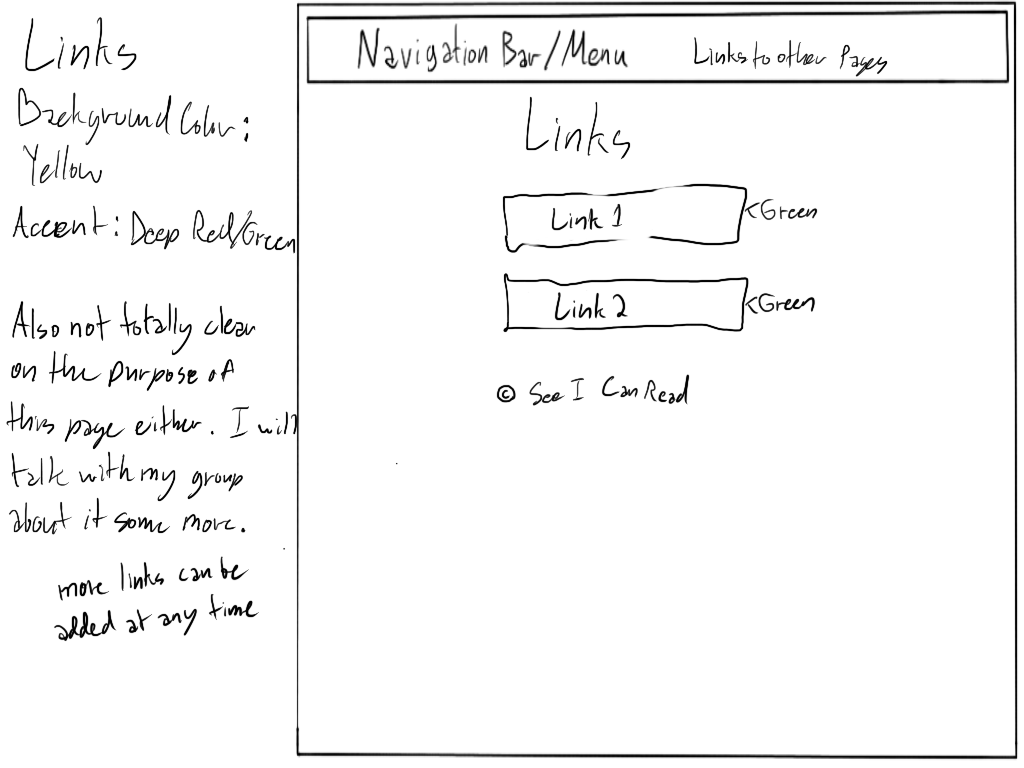 Links
Background Color:
Yellow
Accent: Deep Red/Green
Also not totally clear
on the purpose of
this page either. I will
talk with my group
about it some more.
more links can be
added at any time
Navigation Bar/Menu Links to other Pages
Links
Link 1 <Green
Link 2 <Green
© See I Can Read